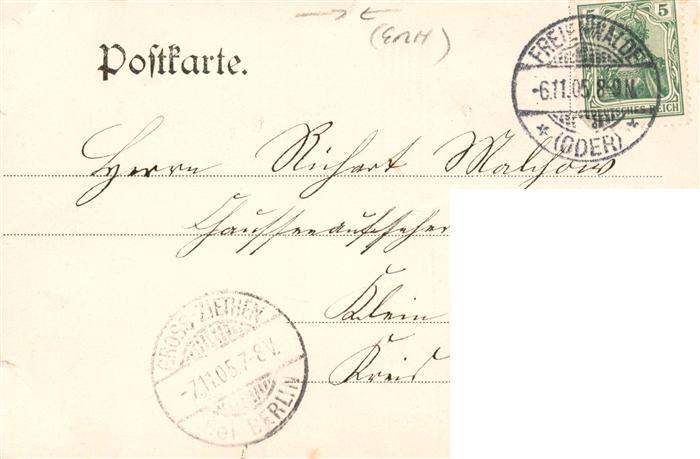 (ERH)
Postkarte.
5 5
DEUTSCHES REICH
FREIENWALDE
-6.11.05.8-9N.
* (ODER) *
Herrn Richart Malchow
Chausseeaufseher
Klein
Kreis
GROSS-ZIETHEN
-7.11.05.7-8V.
BERLIN